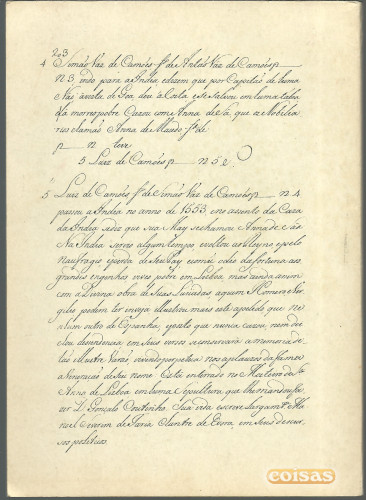 203
4 Simão Vaz de Camões fº de Antão Vaz de Camões p
n 3 indo para a India dizem que por Capitão de huma
Nao a vista de Goa deu á Costa e se salvou em huma taboa
la morreo pobre Cazou com Anna de Sá, que a Nobilia
rio chamão Anna de Macedo fª de
p n teve
5 Luis de Camões p n 5 e
5 Luis de Camões fº de Simão Vaz de Camões p n 4
passou a India no anno de 1553, e no asento da Caza
da India se diz que sua May se chamou Anna de Sá
Na India servio algum tempo e voltou ao Reyno e pelo
Naufragio, e perda de seu Pay, e o mais odio da fortuna aos
grandes engenhos viveo pobre em Lisboa mas ainda assim
com a Divina obra de Suas Luziadas a quem Homero e Vir
gilio podem ter inveja illustra mais este apelido que ne
nhum outro de Espanha, e posto que nunca cazou, nem dei
xou descendencia em Seus versos se conservará a memoria de
tão Illustre Varão vivendo perpetuo nos aplauzos da fama e
a Veneração de Seu nome Está enterrado no Mosteiro de Stª
Anna de Lisboa em huma Sepultura que lhe mandou fa
zer D. Gonçalo Coutinho. Sua vida escreve largamte Ma
noel Severim de Faria Chantre de Evora em Seus discur
sos politicos
coisas